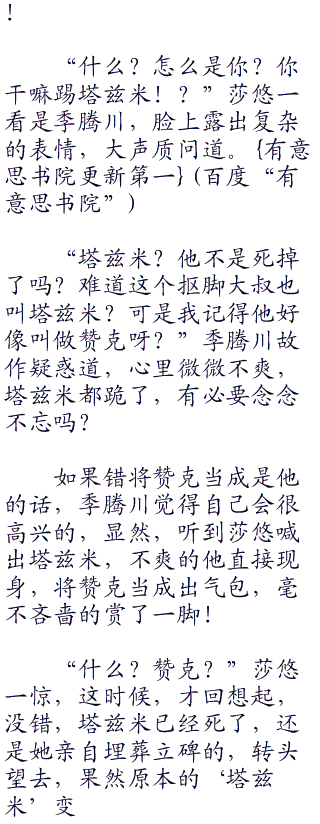 ！
“什么？怎么是你？你
干嘛踢塔兹米！？”莎悠一
看是季腾川，脸上露出复杂
的表情，大声质问道。{有意
思书院更新第一}（百度“有
意思书院”）
“塔兹米？他不是死掉
了吗？难道这个抠脚大叔也
叫塔兹米？可是我记得他好
像叫做赞克呀？”季腾川故
作疑惑道，心里微微不爽，
塔兹米都跪了，有必要念念
不忘吗？
如果错将赞克当成是他
的话，季腾川觉得自己会很
高兴的，显然，听到莎悠喊
出塔兹米，不爽的他直接现
身，将赞克当成出气包，毫
不吝啬的赏了一脚！
“什么？赞克？”莎悠
一惊，这时候，才回想起，
没错，塔兹米已经死了，还
是她亲自埋葬立碑的，转头
望去，果然原本的‘塔兹
米’变